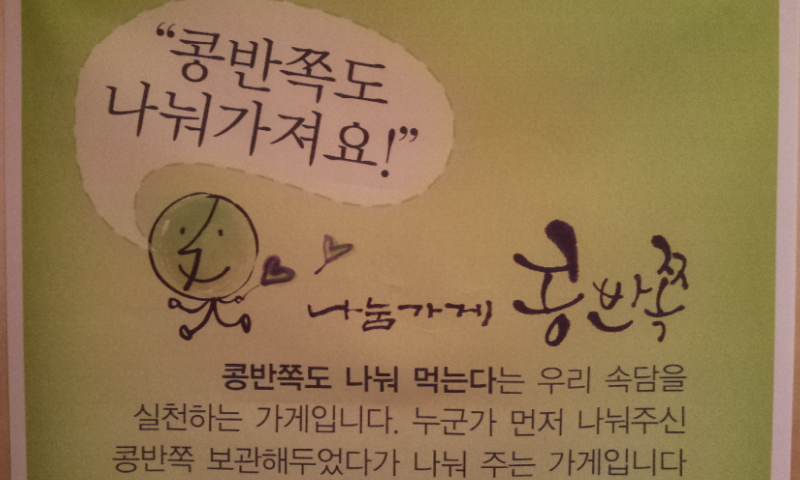 “콩반쪽도
나눠가져요!”
나눔가게 콩반쪽
콩반쪽도 나눠 먹는다는 우리 속담을
실천하는 가게입니다. 누군가 먼저 나눠주신
콩반쪽 보관해두었다가 나눠 주는 가게입니다